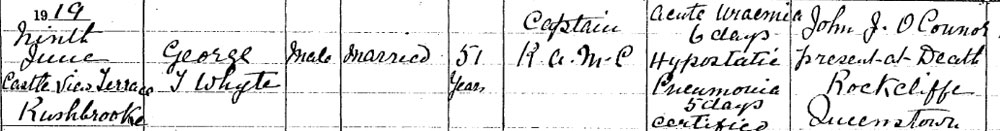 1919
Ninth
June
Castle View Terrace
Rushbrooke
George
T Whyte
Male
Married
51
Years
Captain
R.A.M.C
Acute Uraemia
6 days
Hypostatic
Pneumonia
5 days
certified
John J. O Connor
present at Death
Rockcliffe
Queenstown